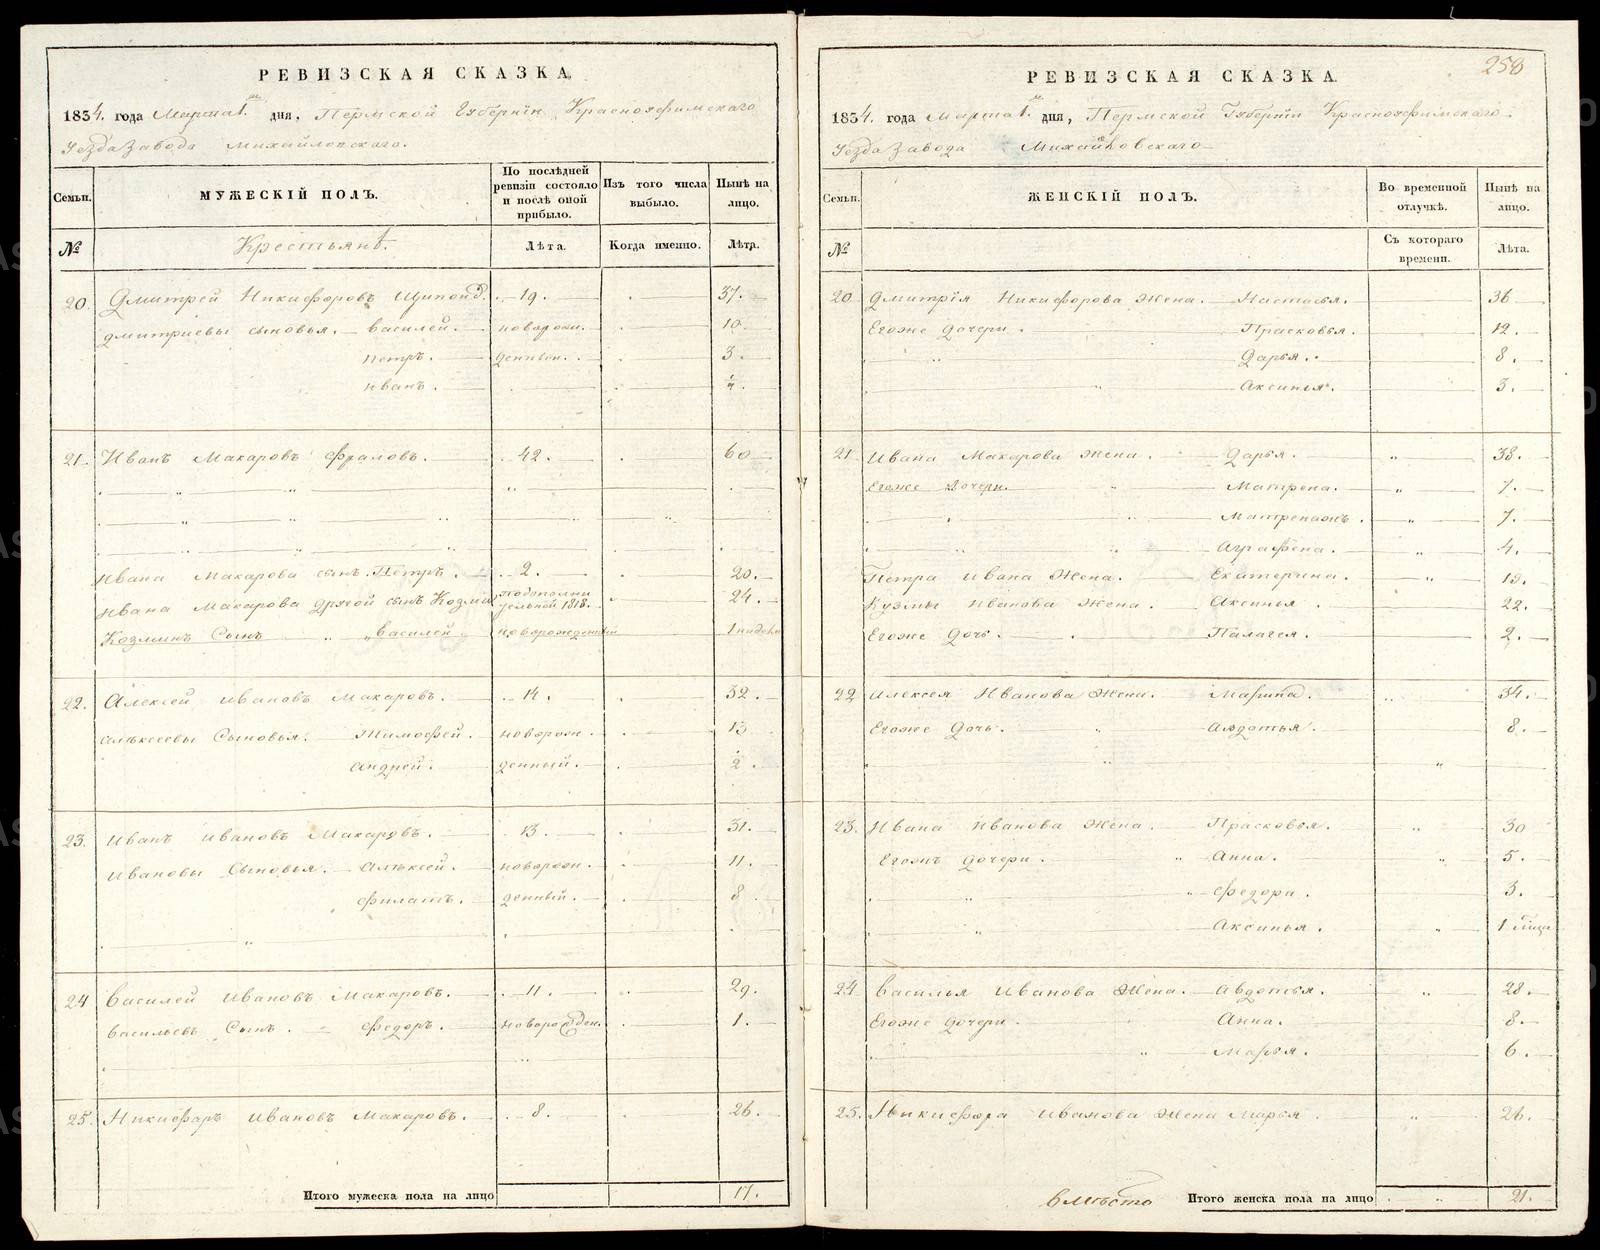 РЕВИЗСКАЯ СКАЗКА.
1834. года Марта 1. дня, Пермской Губернiи Красноуфимскаго
Уезда Завода Михайловскаго.
Семьи.
МУЖЕСКIЙ ПОЛЪ.
По последней ревизiи состояло и послѣ оной прибыло.
Изъ того числа выбыло.
Нынѣ на лицо.
№
Крестьянъ.
Лѣта.
Когда именно.
Лѣта.
20. Дмитрей Никифоровъ 19. 37.
Дмитриевы сыновья. Василей. новорож. 10.
Петръ. денныи. 3.
Иванъ.
21. Иванъ Макаровъ Фраловъ. 42. 60
Ивана Макарова сынъ. Петръ. 2. 20.
Ивана Макарова другой сынъ Козма подополни тельной 1818. 24.
Козминъ Сынъ Василей новорожденный 1 недели
22. Алексей Ивановъ Макаровъ. 14. 32.
Алѣксеевы Сыновья. Тимофей. новорож. 13
Андрей. денный. 2.
23. Иванъ Ивановъ Макаровъ. 13. 31.
Ивановы Сыновья. Алѣксей. новорож. 11.
Филатъ. денный. 8
24 Василей Ивановъ Макаровъ. 11. 29.
Васильевъ Сынъ. Федоръ. новорожден. 1.
25. Никифаръ Ивановъ Макаровъ. 8. 26.
Итого мужеска пола на лицо 17.
258
РЕВИЗСКАЯ СКАЗКА.
1834. года Марта 1. дня, Пермской Губернiи Красноуфимскаго
Уезда Завода Михайловскаго
Семьи.
ЖЕНСКIЙ ПОЛЪ.
Во временной отлучкѣ.
Нынѣ на лицо.
№
Съ котораго времени.
Лѣта.
20. Дмитрiя Никифорова жена. Настасья. 36
Егоже дочери. Прасковья. 12.
Дарья. 8.
Аксинья. 3.
21 Ивана Макарова жена. Дарья. 38.
Егоже дочери. Матрена. 7.
Матренажъ. 7.
Аграфена. 4.
Петра Ивана Жена. Екатерина. 19.
Кузмы Иванова Жена. Аксинья. 22.
Егоже дочь. Палагея. 2.
22 Алексея Иванова Жена. Марина. 34.
Егоже Дочь. Авдотья. 8.
23. Ивана Иванова Жена. Прасковья. 30
Егожъ дочери. Анна. 5.
Федора. 3.
Аксинья. 1
24 Василья Иванова Жена. Авдотья. 28.
Егоже дочери. Анна. 8.
Марья. 6.
25. Никифора Иванова Жена Марья. 26.
вмѣсто Итого женска пола на лицо 21.